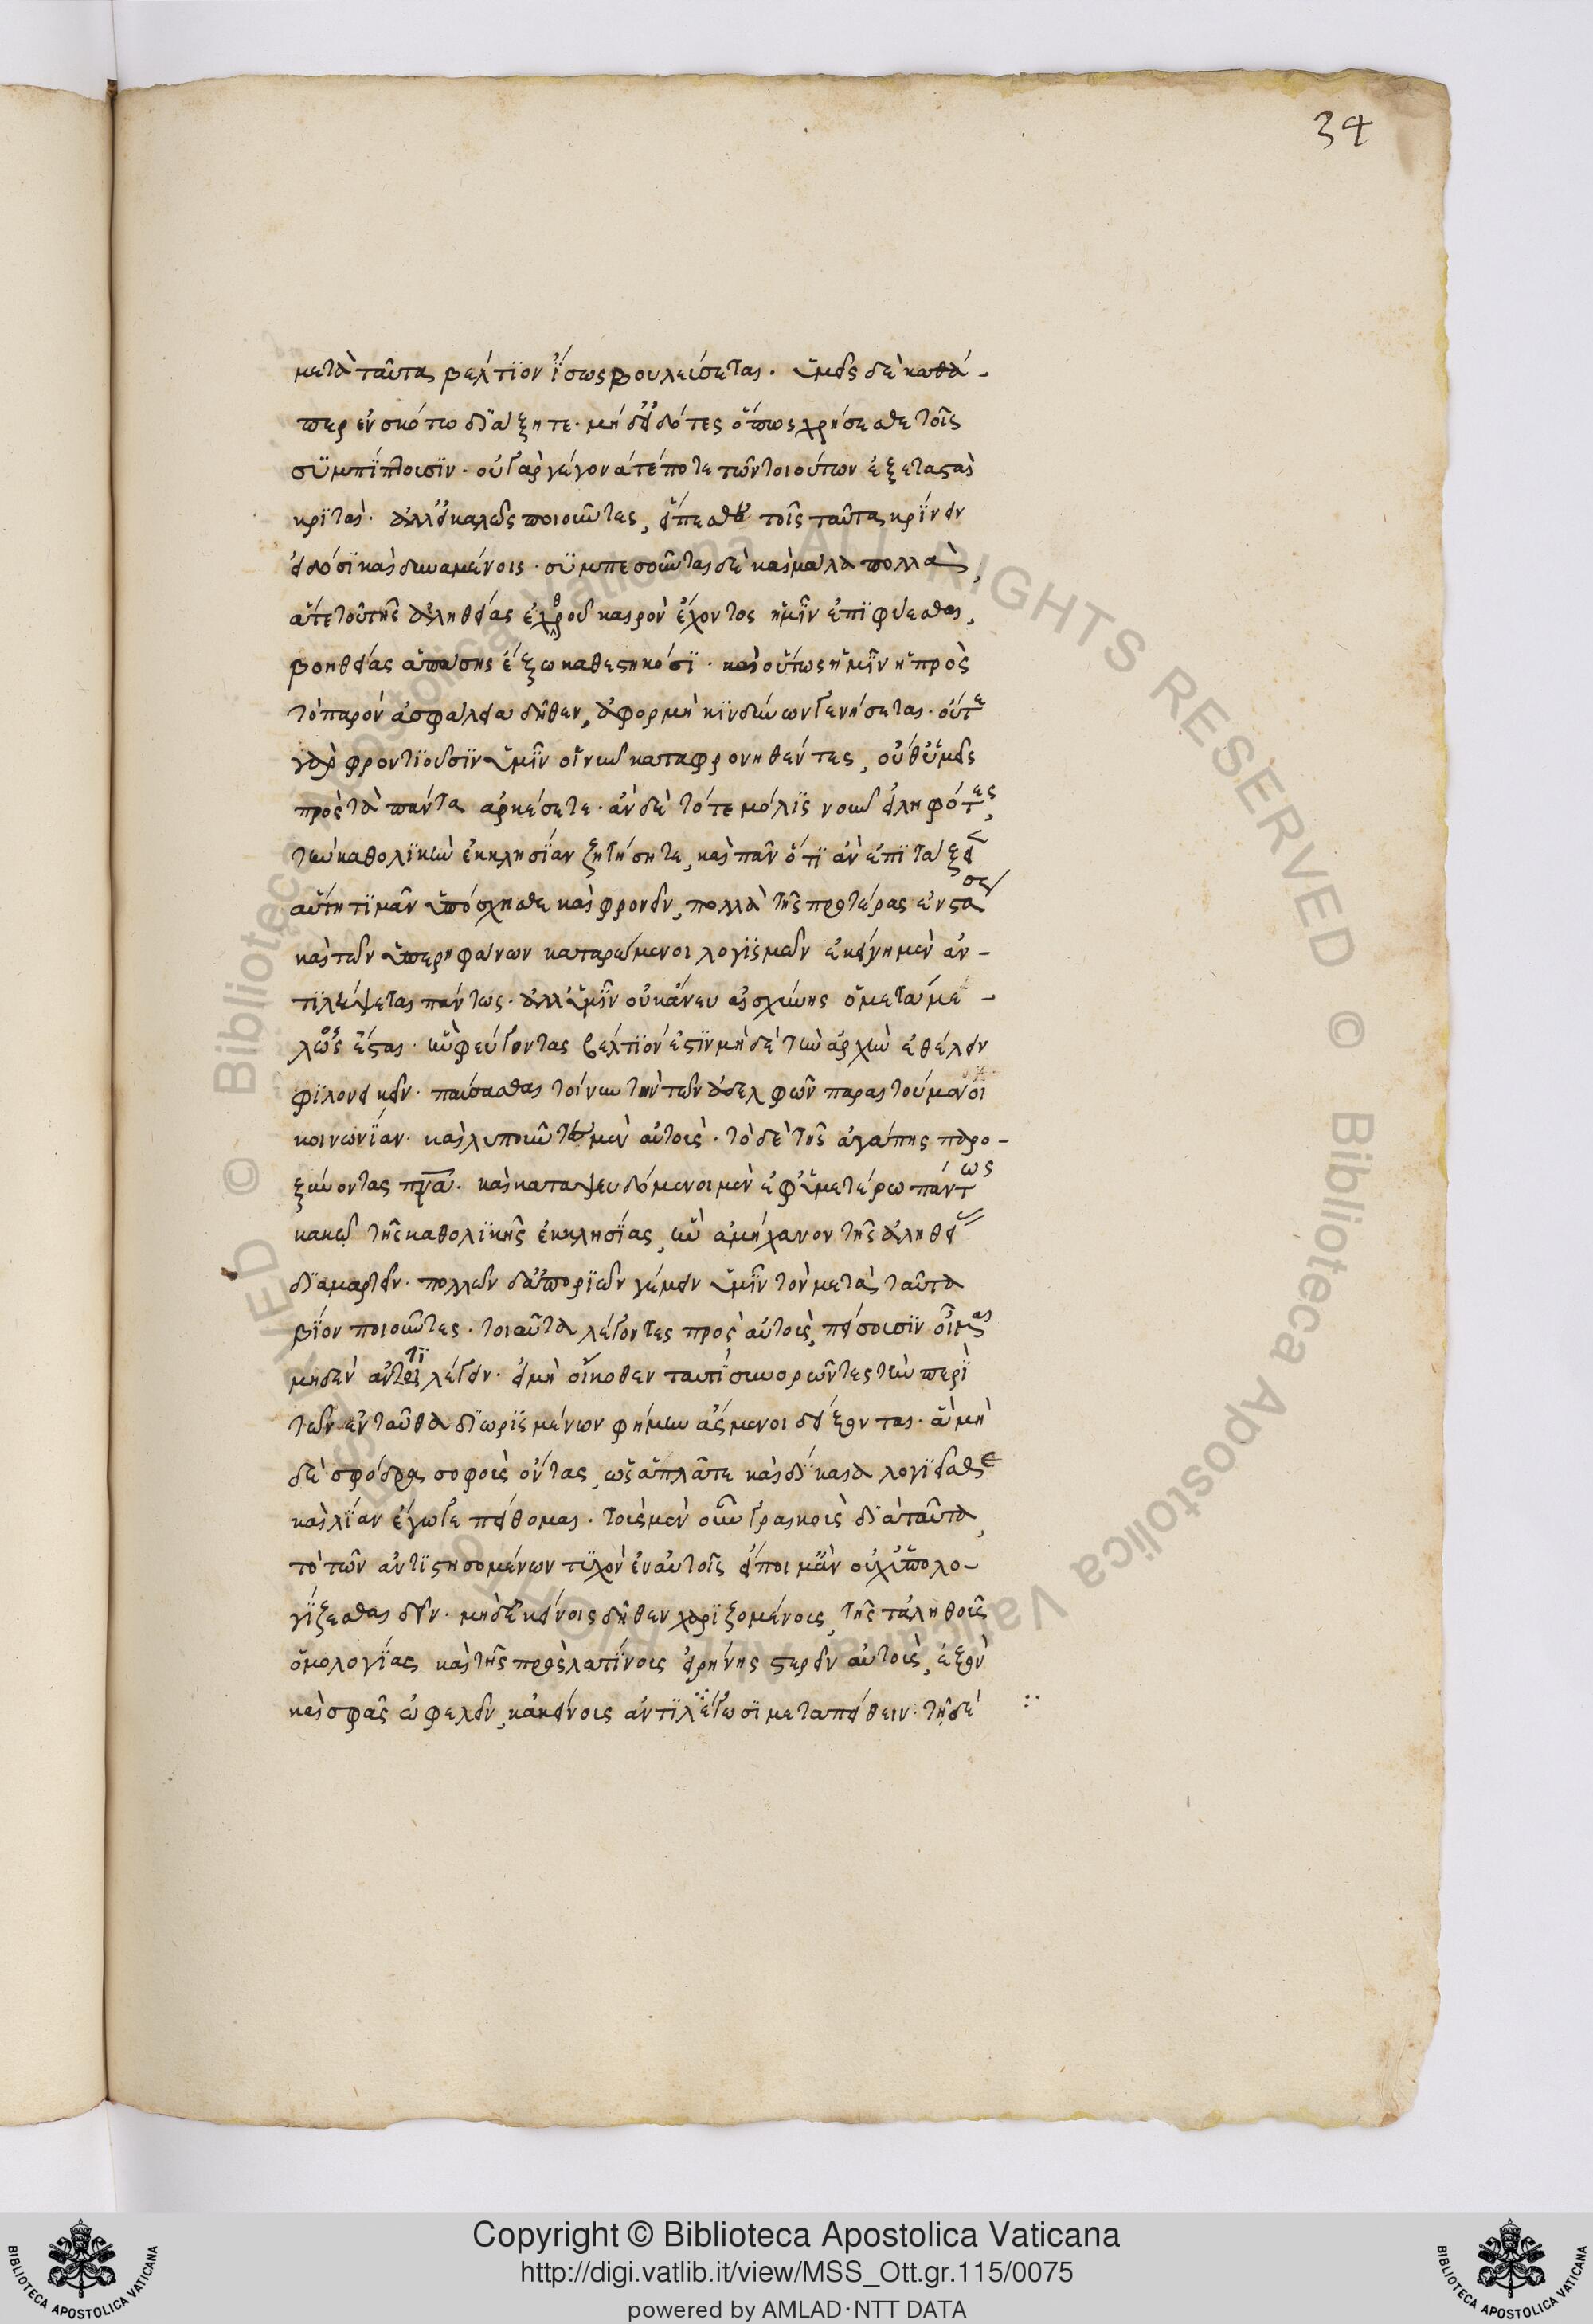 34
μετὰ ταῦτα βελτίον ἴσως βουλεύσεται. ὑμεῖς δὲ καθά-
περ ἐν σκότω διάξητε. μὴ εἰδότες ὅπως χρήσεσθε τοῖς
συμπίπτουσιν. οὐ γὰρ γεγόνατέ ποτε τῶν τοιούτων ἐξετασταὶ
κριταί. ἀλλ' εἰ καλῶς ποιοῦντες, ἕπεσθαι τοῖς ταῦτα κρίνειν
εἰδόσι καὶ δυναμένοις. συμπεσοῦνται δὲ καὶ μάλα πολλὰ,
ἅτε τοῦ τῆς ἀληθείας ἐχθροῦ καιρὸν ἔχοντος ἡμῖν ἐπιφύεσθαι,
βοηθείας ἁπάσης ἔξω καθεστηκόσι. καὶ οὕτως ἡμῖν ἡ πρὸς
τὸ παρὸν ἀσφάλεια δῆθεν, ἀφορμὴ κινδύνων γενήσεται. οὔτε
γὰρ φροντιοῦσιν ὑμῖν οἱ νῦν καταφρονηθέντες, οὔθ' ὑμεῖς
πρὸς τὰ πάντα ἀρκέσετε. ἀν δὲ τότε μόλις νοῦν εἰληφότες,
τὴν καθολικὴν ἐκκλησίαν ζητήσητε, καὶ πᾶν ὅτι ἂν ἐπιτάξει
αὕτη τιμᾶν ὑπόσχησθε καὶ φρονεῖν, πολλὰ τῆς προτέρας ἐνστάσε
καὶ τῶν ὑπερηφάνων καταρώμενοι λογισμῶν ἐκείνη μὲν ἀν-
τιλήψεται πάντως. ἀλλ' ὑμῖν οὐκ ἄνευ αἰσχύνης ὁ μεταμε-
λος ἔσται. ἣν φεύγοντας βέλτιόν ἐστιν μηδὲ τὴν ἀρχὴν ἐθέλειν
φιλονεικεῖν. παύσασθαι τοίνυν τὴν τῶν ἀδελφῶν παραιτούμενοι
κοινωνίαν. καὶ λυποῦντες μὲν αὐτοὺς. τὸ δὲ τῆς ἀγάπης παρο-
ξύνοντας πνα. καὶ καταψευδόμενοι μὲν ἐφ' ὑμετέρω πάντως
κακῶ τῆς καθολικῆς ἐκκλησίας, ἣν ἀμήχανον τῆς ἀληθεί
διαμαρτεῖν. πολλῶν δ' ἀποριῶν γέμειν ὑμῖν τὸν μετὰ ταῦτα
βίον ποιοῦντες. τοιαῦτα λέγοντες πρὸς αὐτοὺς, πείσουσιν οἶμαι
μηδὲν ἀντιλέγειν. εἰ μὴ οἴκοθεν ταυτὶ συνορῶντες τὴν περὶ
τῶν ἐνταῦθα διωρισμένων φήμην ἄσμενοι δείξονται. ἂν μὴ
δὲ σφόδρα σοφοὺς ὄντας, ὡς ἁπλᾶτε καὶ δίκαια λογίσασθε
καὶ λίαν ἔγωγε πείθομαι. τοὺς μὲν οὖν γραικοὺς διὰ ταῦτα,
τὸ τῶν ἀντιστησομένων τυχὸν ἐν αὐτοῖς εἴποιμ' ἂν οὐχ ὑπολο-
γίζεσθαι δεῖν. μὴ δ' ἐκείνοις δῆθεν χαριζομένους, τῆς τἀληθοῦς
ὁμολογίας καὶ τῆς πρὸς λατίνους εἰρήνης στερεῖν αὐτοὺς, ἐξὸν
καὶ σφᾶς ὠφελεῖν, κἀκείνοις ἀντιλέγωσι μεταπείθειν. τῇ δὲ
Copyright © Biblioteca Apostolica Vaticana
http://digi.vatlib.it/view/MSS_Ott.gr.115/0075
powered by AMLAD·NTT DATA